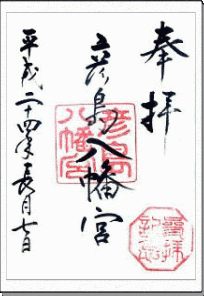 奉拝
彦島八幡宮
平成二十四年長月七日
彦島
八幡宮